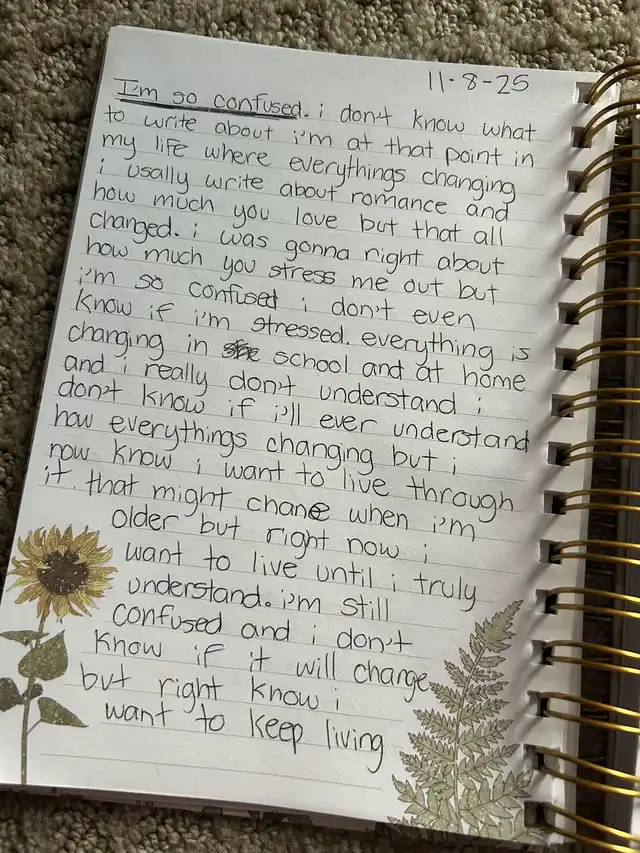 11-8-25
I'm so confused. i don't know what
to write about i'm at that point in
my life where everythings changing
i usally write about romance and
how much you love but that all
changed. i was gonna right about
how much you stress me out but
i'm so confused i don't even
know if i'm stressed. everything is
changing in school and at home
and i really don't understand i
don't know if i'll ever understand
how everythings changing but i
now know i want to live through
it. that might chane when i'm
older but right now i
want to live until i truly
understand. i'm still
confused and i don't
know if it will change
but right know i
want to keep living